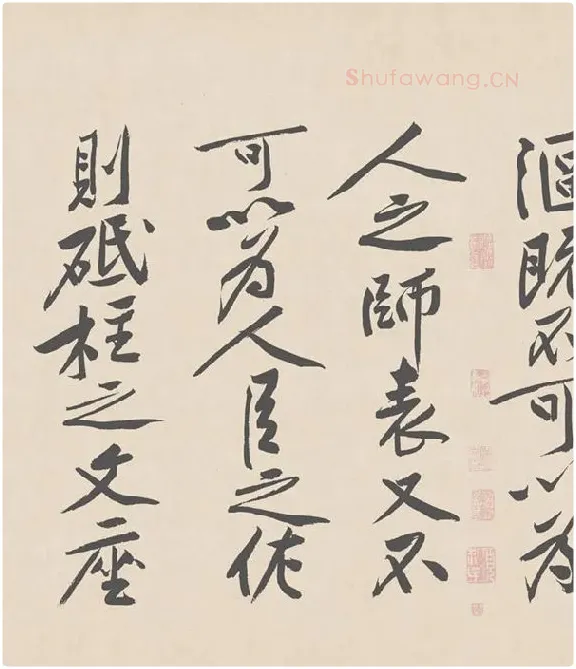 Shufawang.CN
漚既不可以為
人之師表又不
可以為人臣之佐
則砥柱之文座